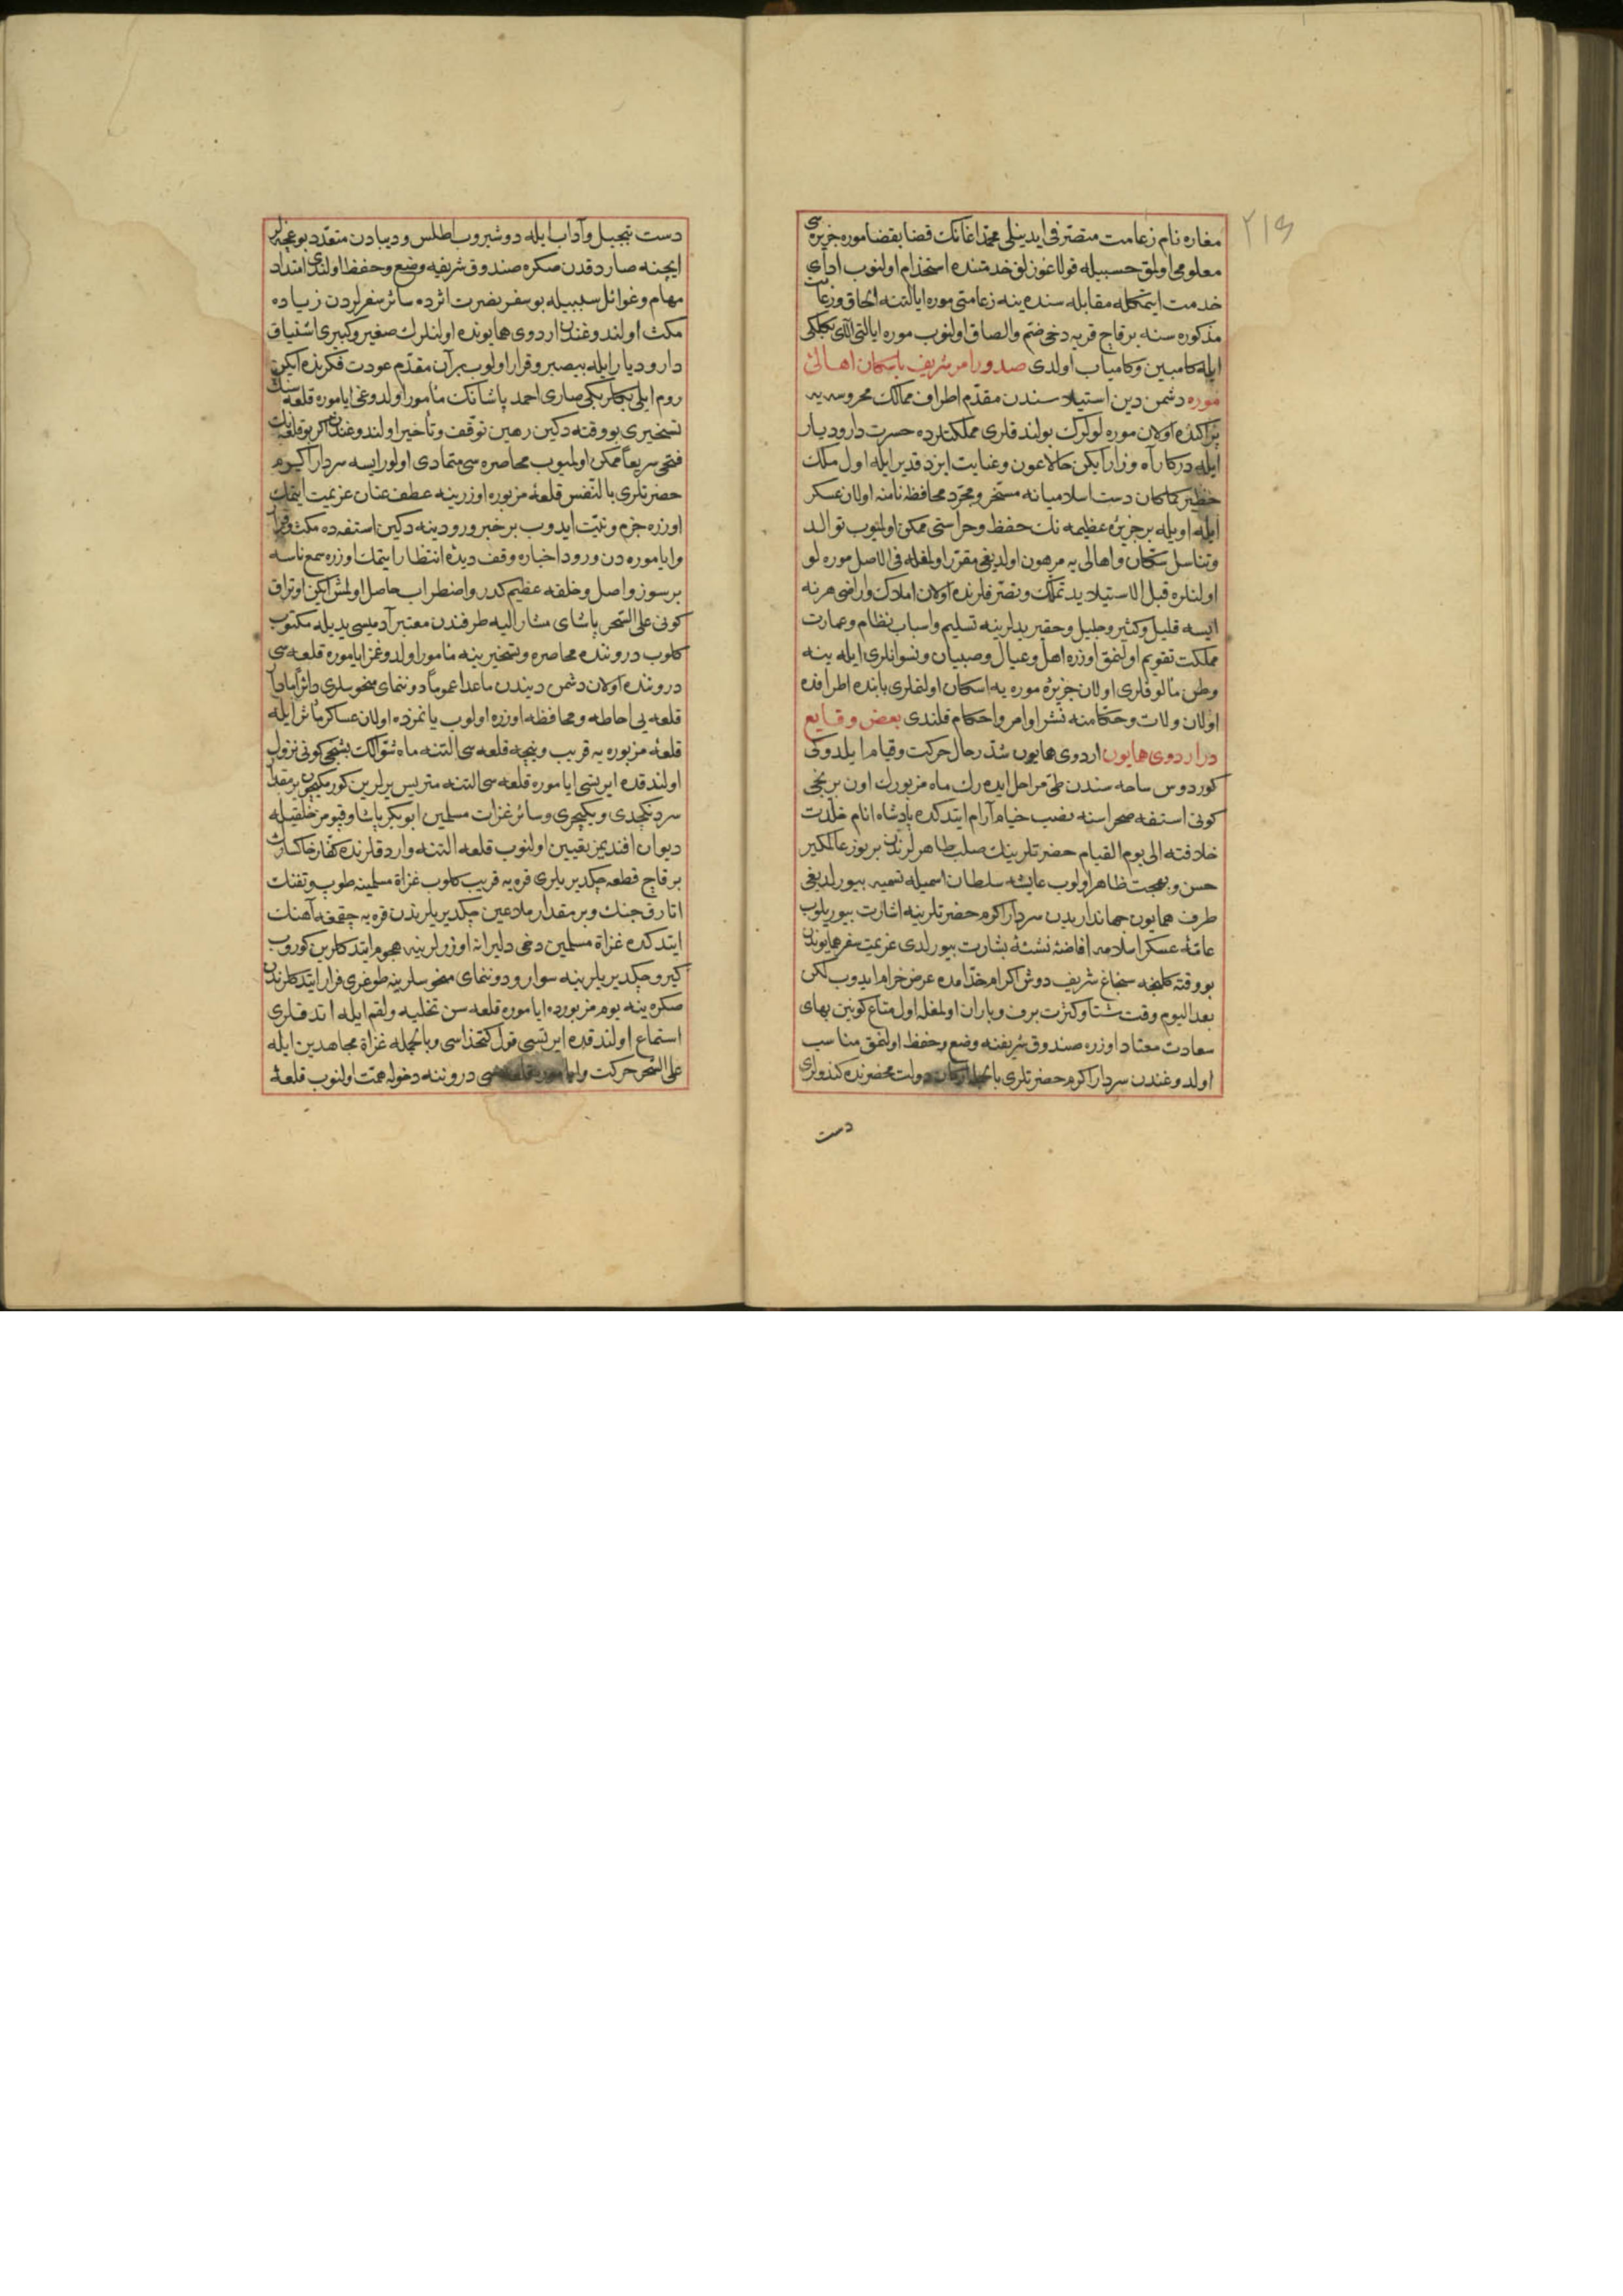 ٢١٩
مغاره نام زعامت متصرفی ایدینلی محمد اغانك قضا بقضا موره جزیره‌سی
معلومی اولمق حسبیله قولاغوزلق خدمتنده استخدام اولنوب ادای
خدمت ایتمكله مقابله سنده ینه زعامتی موره ایالتنه الحاق وزعامت
مذكوره سنه برقاج قریه دخی ضم والصاق اولنوب موره ایالتی الای بكلكی
ایله كامبین وكامیاب اولدی صدور امر شریف باسكان اهالئ
موره دشمن دین استیلاسندن مقدم اطراف ممالك محروسه یه
پراكنده اولان موره لولرك بولندقلری مملكتلرده حسرت دار ودیار
ایله دركار آه وزار ایكن حالا عون وعنایت ایزد قدیر ایله اول ملك
خطیر كماكان دست اسلامیانه مسخر ومجرد محافظه نامنه اولان عسكر
ایله اویله بر جزیرۀ عظیمه نك حفظ وحراستی ممكن اولمیوب توالد
وتناسل سكان واهالی یه مرهون اولدیغی مقرر اولمغله فی الاصل موره لو
اولنلره قبل الاستیلا ید تملك وتصرفلرنده اولان املاك واراضی هرنه
ایسه قلیل وكثیر وجلیل وحقیر یدلرینه تسلیم واسباب نظام وعمارت
مملكت تقویم اولنمق اوزره اهل وعیال وصبیان ونسوانلری ایله ینه
وطن مألوفلری اولان جزیرۀ موره یه اسكان اولنملری بابنده اطرافده
اولان ولات وحكامنه نشر اوامر واحكام قلندی بعض وقایع
در اردوی همایون اردوی همایون شد رحال حركت وقیام ایلدوكی
كوردوس ساحه سندن طی مراحل ایده رك ماه مزبورك اون برنجی
كونی استفه صحراسنه نصب خیام آرام ایتدكده پادشاه انام خلدت
خلافته الی یوم القیام حضرتلرینك صلب طاهرلرندن بر یوز عالمكیر
حسن وبهجت ظاهر اولوب عایشه سلطان اسمیله تسمیه بیورلدیغی
طرف همایون جهانداریدن سردار اكرم حضرتلرینه اشارت بیوریلوب
عامۀ عسكر اسلامه افاضۀ نشئۀ بشارت بیورلدی عزیمت سفر همایوندن
بو وقته كلنجه سنجاغ شریف دوش اكرام خدامده عرض خرام ایدوب لكن
بعد الیوم وقت شتا وكثرت برف وباران اولمغله اول متاع كونین بهای
سعادت معتاد اوزره صندوق شریفنه وضع وحفظ اولنمق مناسب
اولدوغندن سردار اكرم حضرتلری با دولت محضرنده كندولری
دست
دست تبجیل وآداب ایله دوشیروب اطلس ودیبادن متعدد بوغچه‌لر
ایچنه صاردقدن صكره صندوق شریفه وضع وحفظ اولندی امتداد
مهام وغوائل سببیله بو سفر نصرت اثرده سائر سفرلردن زیاده
مكث اولندوغندن اردوی همایونده اولنلرك صغیر وكبیری اشتیاق
دار ودیار ایله بیصبر وقرار اولوب بر آن مقدم عودت فكرنده ایكن
روم ایلی بكلربكی صاری احمد پاشانك مأمور اولدوغی ایاموره قلعه سنك
تسخیری بو وقته دكین رهین توقف وتأخیر اولندوغندن اكر بو قلعه نك
فتحی سریعا ممكن اولمیوب محاصره سی متمادی اولور ایسه سردار اكرم
حضرتلری بالنفس قلعۀ مزبوره اوزرینه عطف عنان عزیمت ایتمك
اوزره جزم ونیت ایدوب بر خبر ورودینه دكین استفه ده مكث وقرار
وایاموره دن ورود اخباره وقف دیدۀ انتظار ایتمك اوزره سمع ناسه
بر سوز واصل وخلقه عظیم كدر واضطراب حاصل اولمش ایكن اوتراق
كونی علی السحر پاشای مشار الیه طرفندن معتبر آدمیسی یدیله مكتوب
كلوب دروننده محاصره وتسخیرینه مأمور اولدوغمز ایاموره قلعه سی
دروننده اولان دشمن دیندن ماعدا عموما دوننمای منحوسلری دائرا مادار
قلعه یی احاطه ومحافظه اوزره اولوب یانمزده اولان عساكر مأثر ایله
قلعۀ مزبوره یه قریب وینجه قلعه سی التنه ماه شوالك بشنجی كونی نزول
اولندقده ایرتسی ایاموره قلعه سی التنه متریس یرلرین كورمكیچون بر مقدار
سردنكچدی ویكیچری وسائر غزات مسلمین ابوبكر پاشا وقپومز خلقیله
دیوان افندیمز تعیین اولنوب قلعه التنه واردقلرنده كفار خاكسارك
برقاج قطعه چكدیریلری قره یه قریب كلوب غزاة مسلمینه طوپ وتفنك
اتارق جنك وبر مقدار ملاعین چكدیریلریندن قره یه چیقمغه آهنك
ایتدكده غزاة مسلمین دخی دلیرانه اوزرلرینه هجوم ایتدكلرین كوروب
كیرو چكدیریلرینه سوار ودوننمای منحوسلرینه طوغری فرار ایتدكلرندن
صكره ینه یوم مزبورده ایاموره قلعه سن تخلیه ولغم ایله اتدقلری
استماع اولندقده ایرتسی قول كتخداسی وبالجمله غزاة مجاهدین ایله
علی السحر حركت و دروننه دخوله همت اولنوب قلعۀ